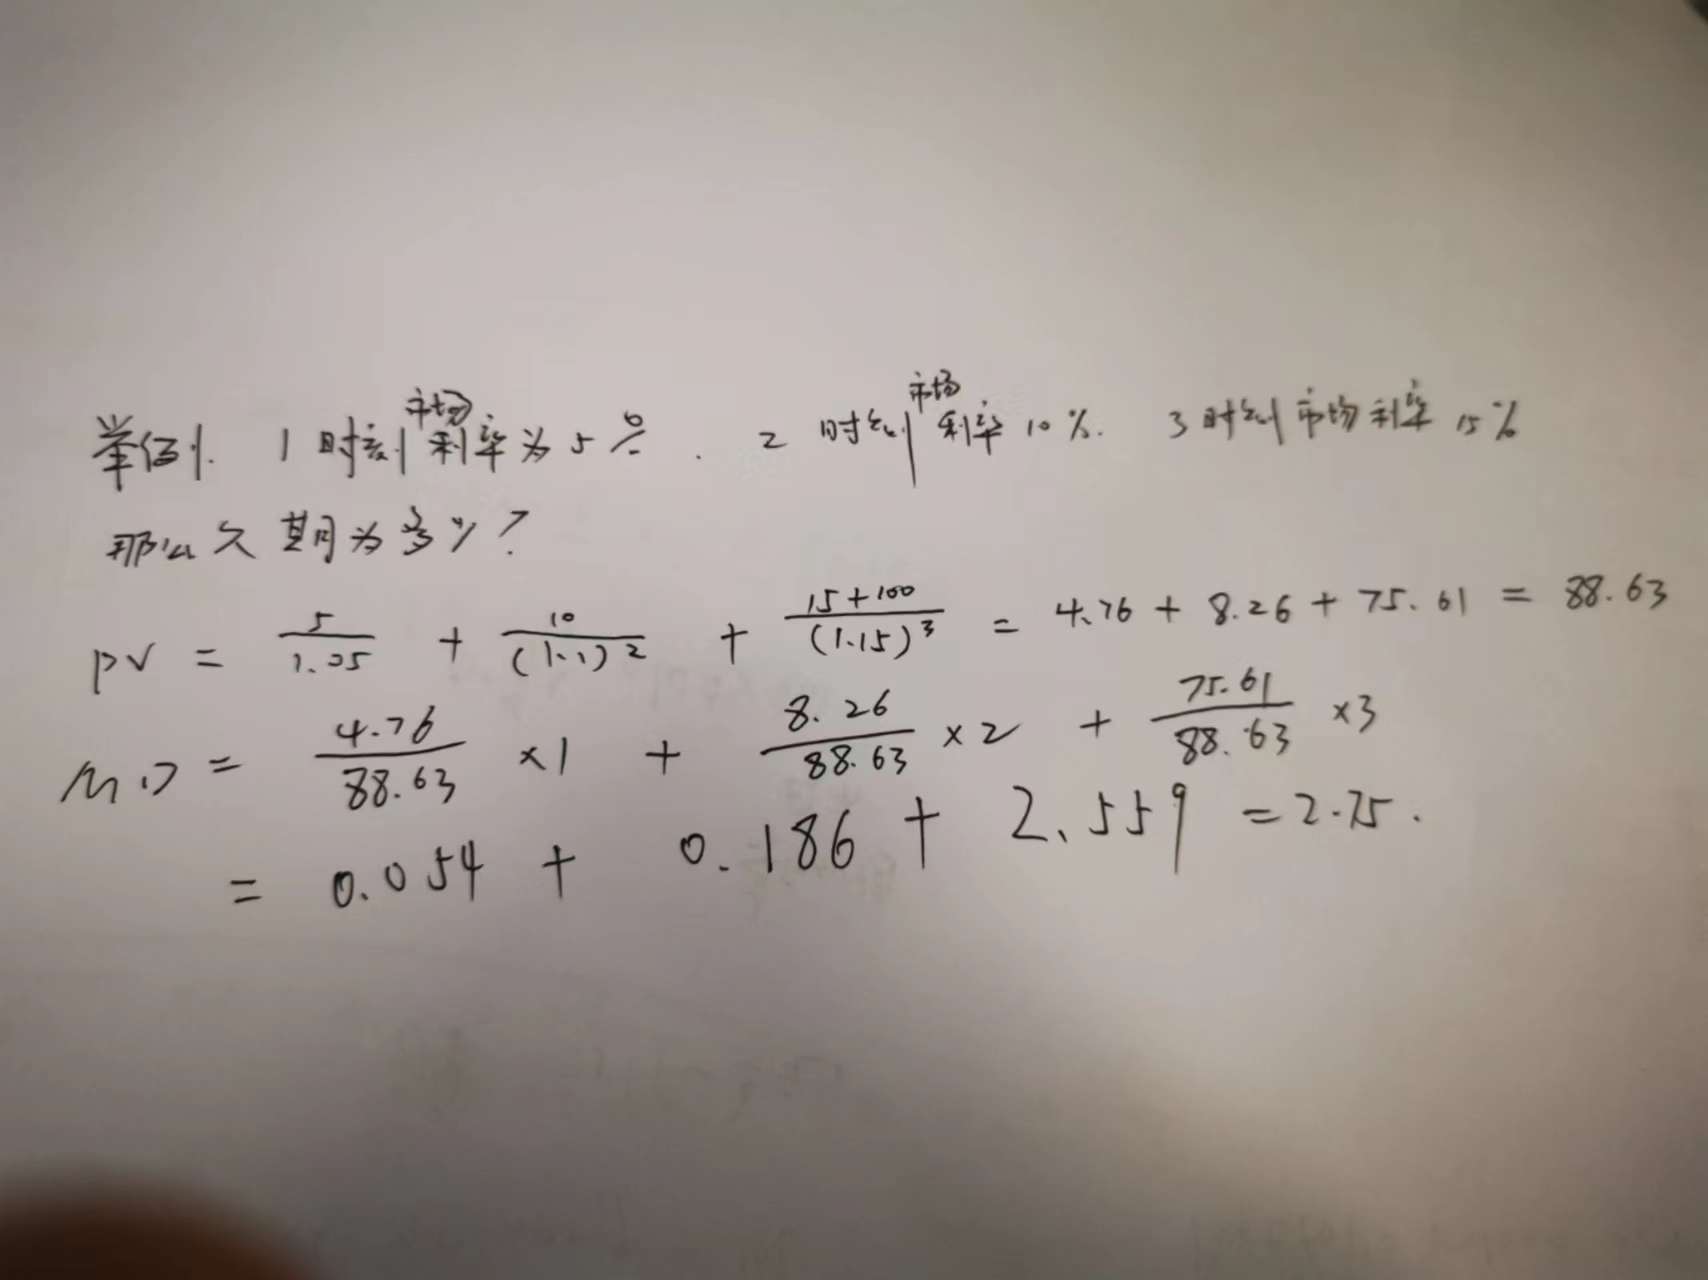 举例. 1时刻市场利率为5%. 2时刻市场利率10%. 3时刻市场利率15%
那么久期为多少?
PV = 5/1.05 + 10/(1.1)² + 15+100/(1.15)³ = 4.76 + 8.26 + 75.61 = 88.63
M.D = 4.76/88.63 ×1 + 8.26/88.63 ×2 + 75.61/88.63 ×3
= 0.054 + 0.186 + 2.559 = 2.75.